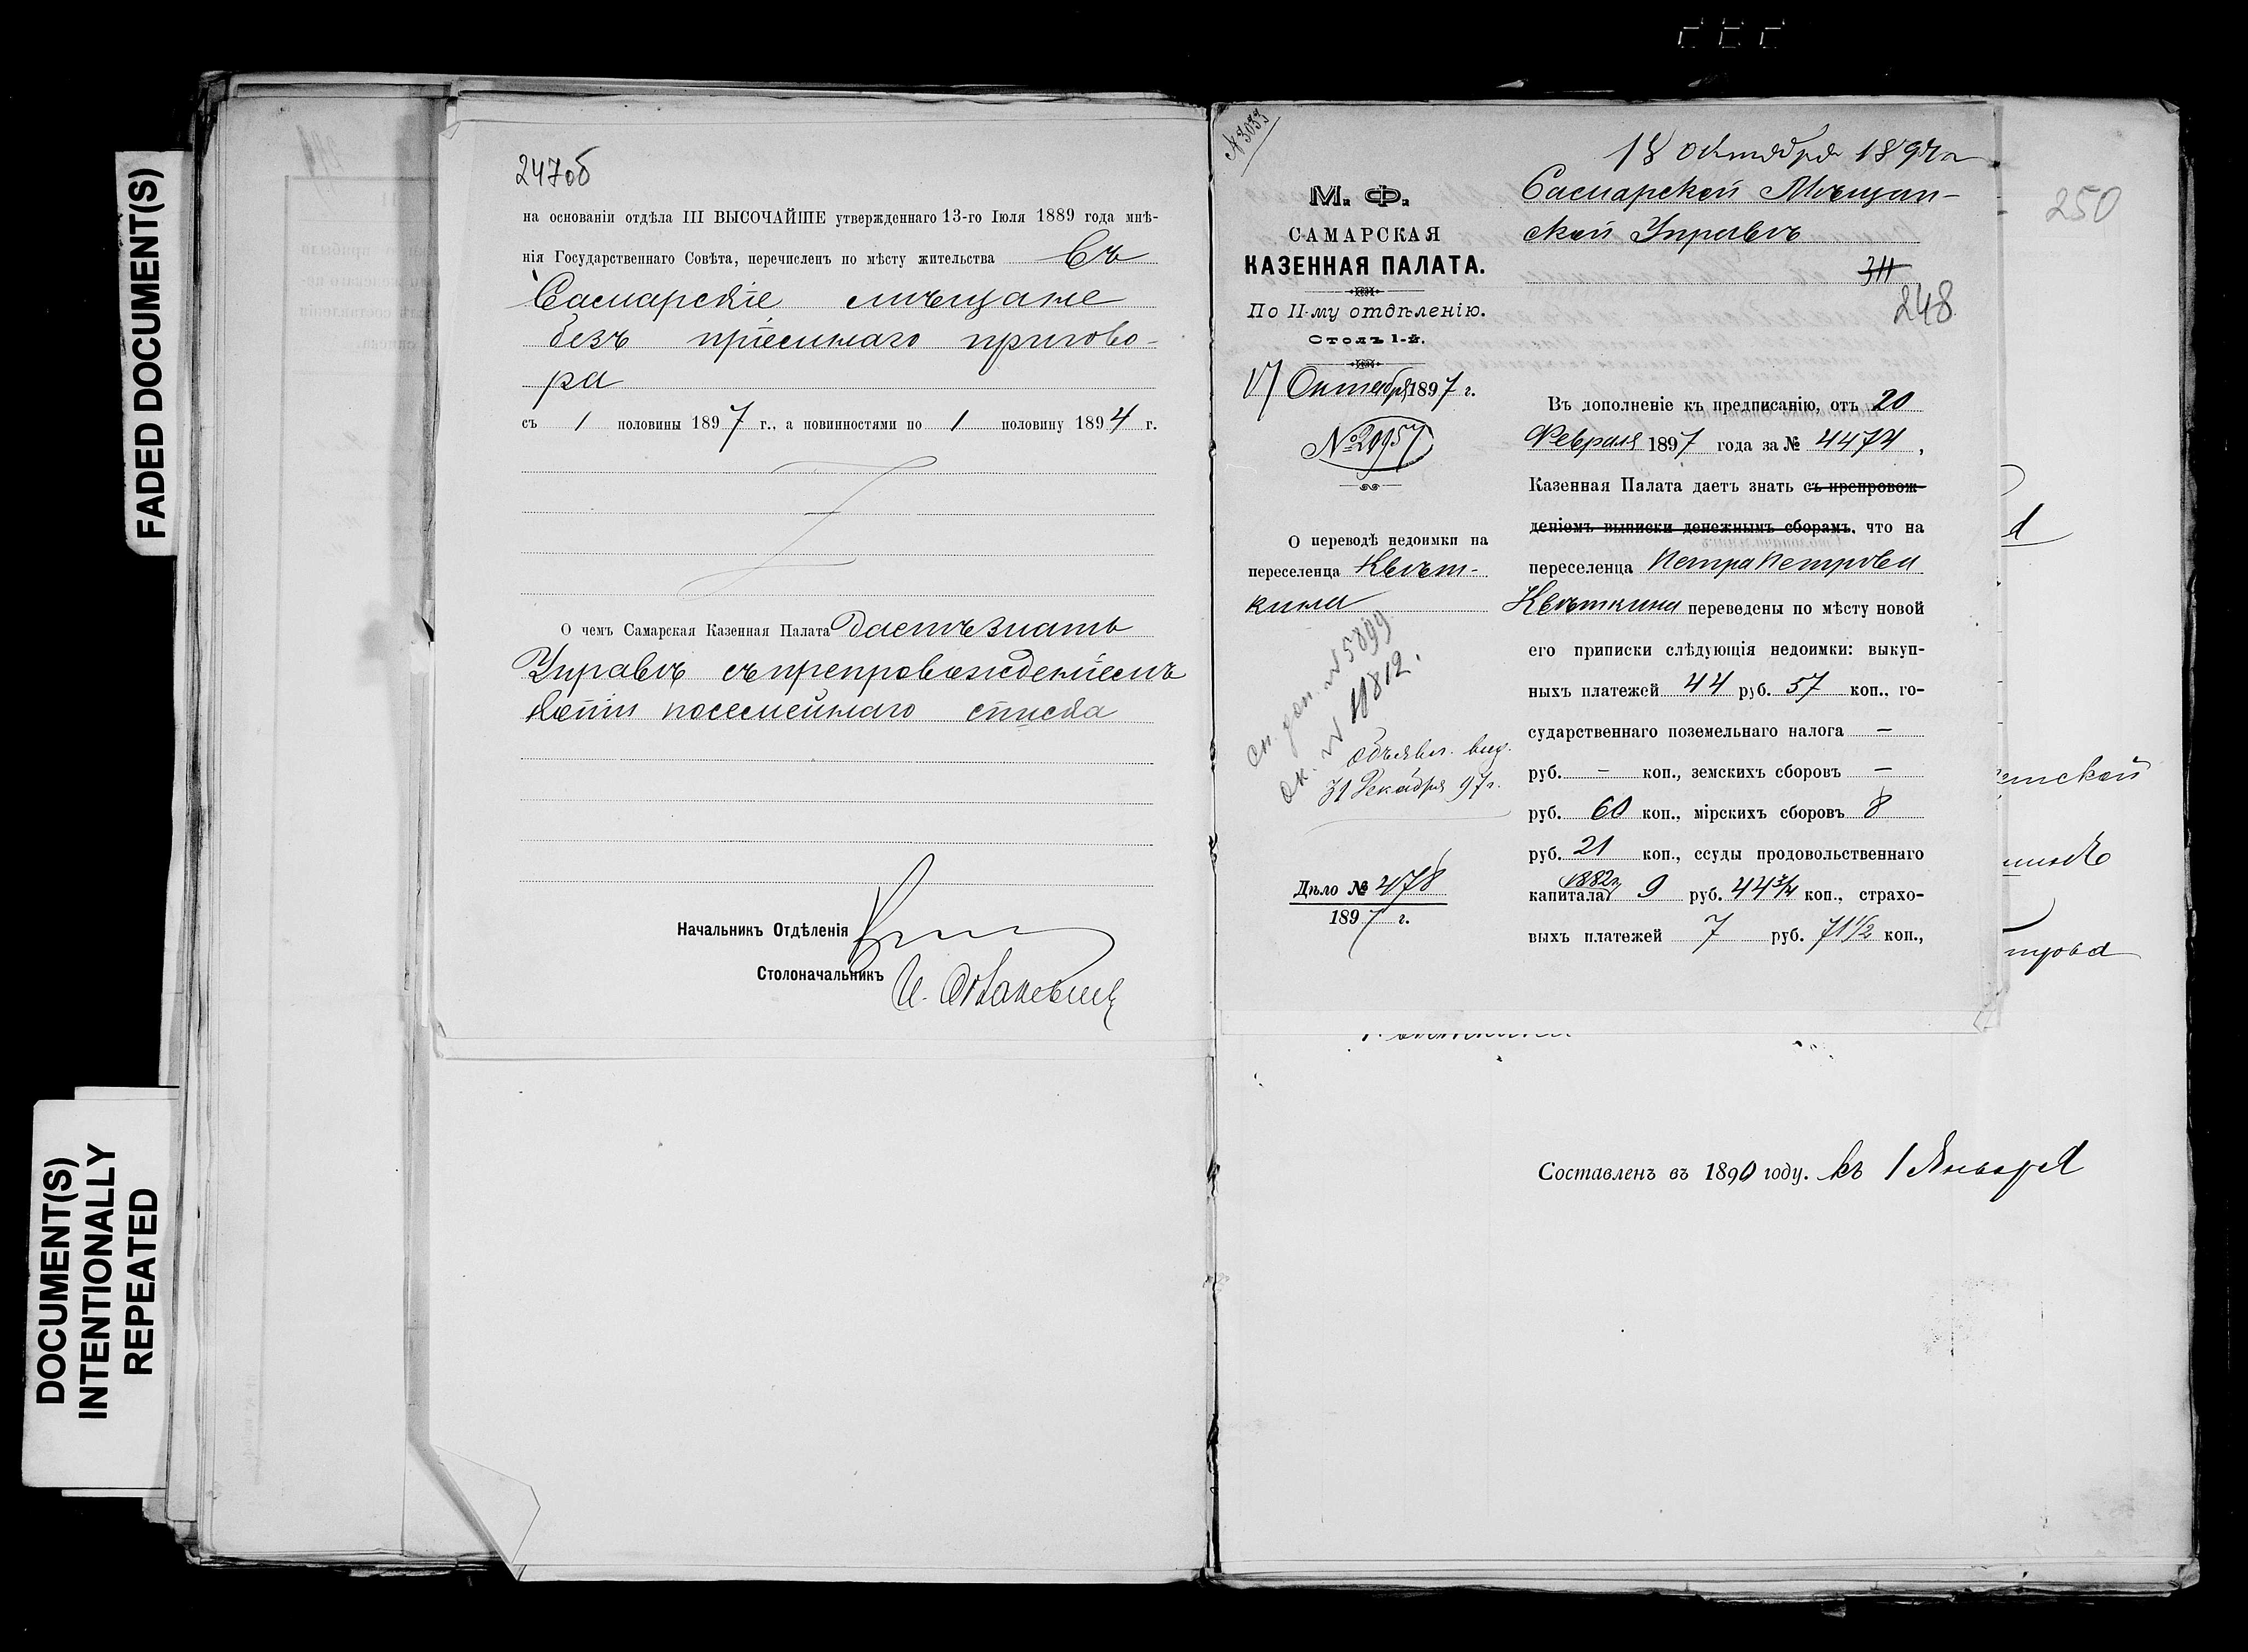 FADED DOCUMENT(S)
DOCUMENT(S)
INTENTIONALLY
REPEATED
247об
на основаніи отдѣла III ВЫСОЧАЙШЕ утвержденнаго 13-го Іюля 1889 года мнѣ-
нія Государственнаго Совѣта, перечисленъ по мѣсту жительства въ
Самарскіе мѣщане
безъ пріемнаго пригово-
ра
съ 1 половины 1897 г., а повинностями по 1 половину 1894 г.
О чемъ Самарская Казенная Палата даетъ знать
Управѣ съ препровожденіемъ
копіи посемейнаго списка
Начальникъ Отдѣленія
Столоначальникъ
№ 3033
М. Ф.
САМАРСКАЯ
КАЗЕННАЯ ПАЛАТА.
По II-му отдѣленію.
Столъ 1-й.
17 Октября 1897 г.
№ 20957
О переводѣ недоимки на
переселенца Квѣт-
кина
сп. доп. № 5899
ок. № 11812.
Объявл. выд.
31 Декабря 97 г.
Дѣло № 478
1897 г.
18 октября 1897 г
Самарской Мѣщан-
ской Управѣ
311
248
Въ дополненіе къ предписанію, отъ 20
Февраля 1897 года за № 4474,
Казенная Палата даетъ знать съ препровож-
деніемъ выписки денежнымъ сборамъ, что на
переселенца Петра Петрова
Квѣткина переведены по мѣсту новой
его приписки слѣдующія недоимки: выкуп-
ныхъ платежей 44 руб. 57 коп., го-
сударственнаго поземельнаго налога —
руб. — коп., земскихъ сборовъ —
руб. 60 коп., мірскихъ сборовъ 8
руб. 21 коп., ссуды продовольственнаго
капитала 1882 г. 9 руб. 44 3/4 коп., страхо-
выхъ платежей 7 руб. 71 1/2 коп.,
250
Составленъ въ 1890 году. къ 1 Января